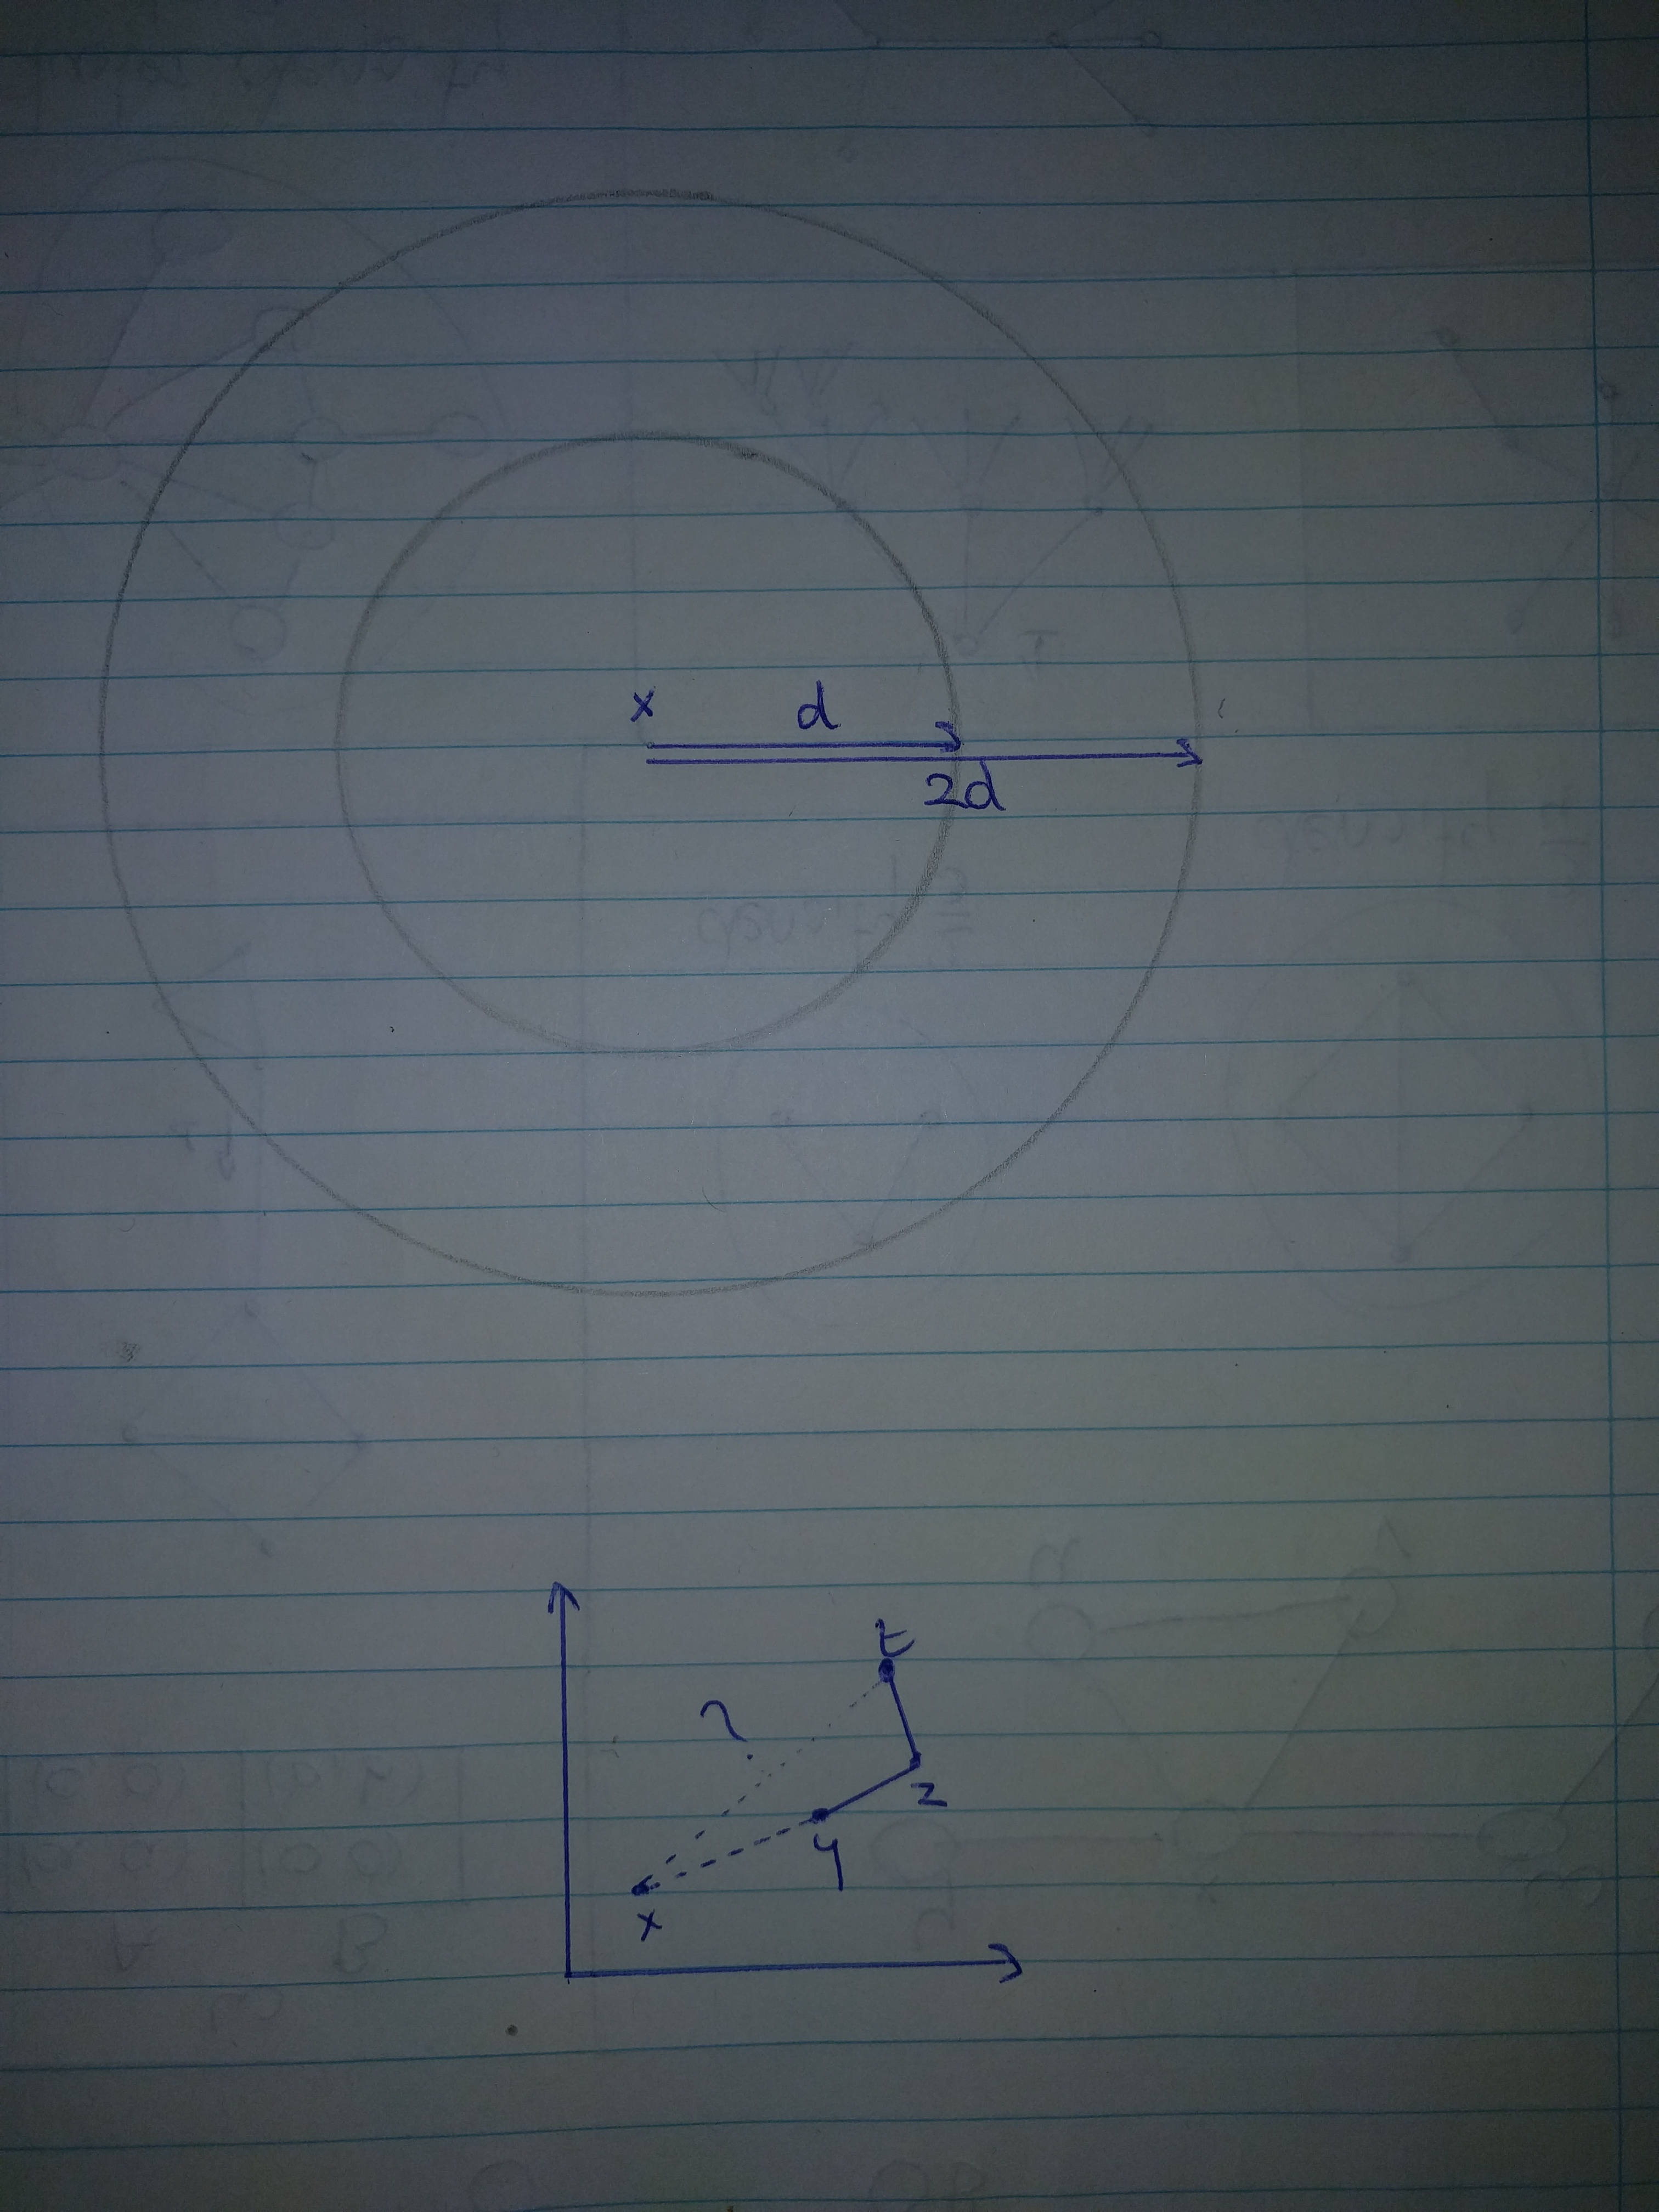 x
d
2d
t
?
z
y
x